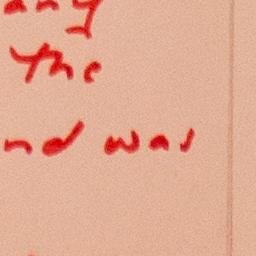 any
the
nd was